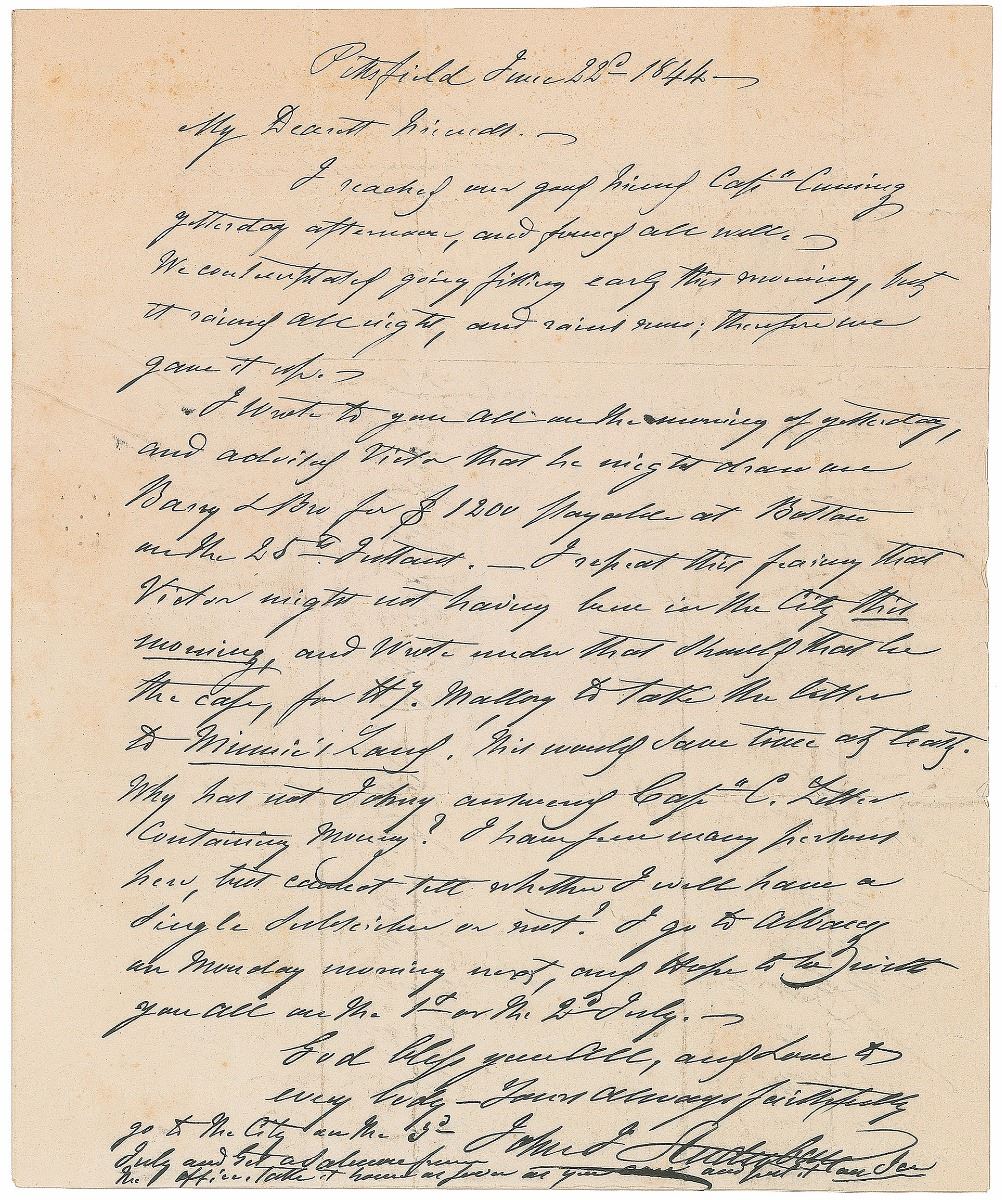 Pittsfield June 22d 1844 —
My Dearest Friends. —
I reached our good friend Capn Cuming
yesterday afternoon, and found all well. —
We contemplated going fishing early this morning, but
it rained all night, and rains now; therefore we
gave it up. —
I Wrote to you all on the morning of yesterday,
and advised Victor that he might draw on
Barry & Bro for $1200 payable at Boston
on the 25th Instant. — I repeat this fearing that
Victor might not having been in the City this
morning, and Wrote under that should that be
the case, for Hy. Mallory to take the letter
to Minnie's Land. This would save time at least.
Why has not Johny answered Capn C. Letter
Containing Money? I have seen many persons
here, but cannot tell whether I will have a
single subscriber or not! I go to Albany
on Monday morning next, and Hope to be with
you all on the 1st or the 2d July. —
God bless you all, and Love to
every body — Yours always faithfully
John J
go to the City on the 3d
July and get a
the office. take it home as soon as you can and put it on Ice